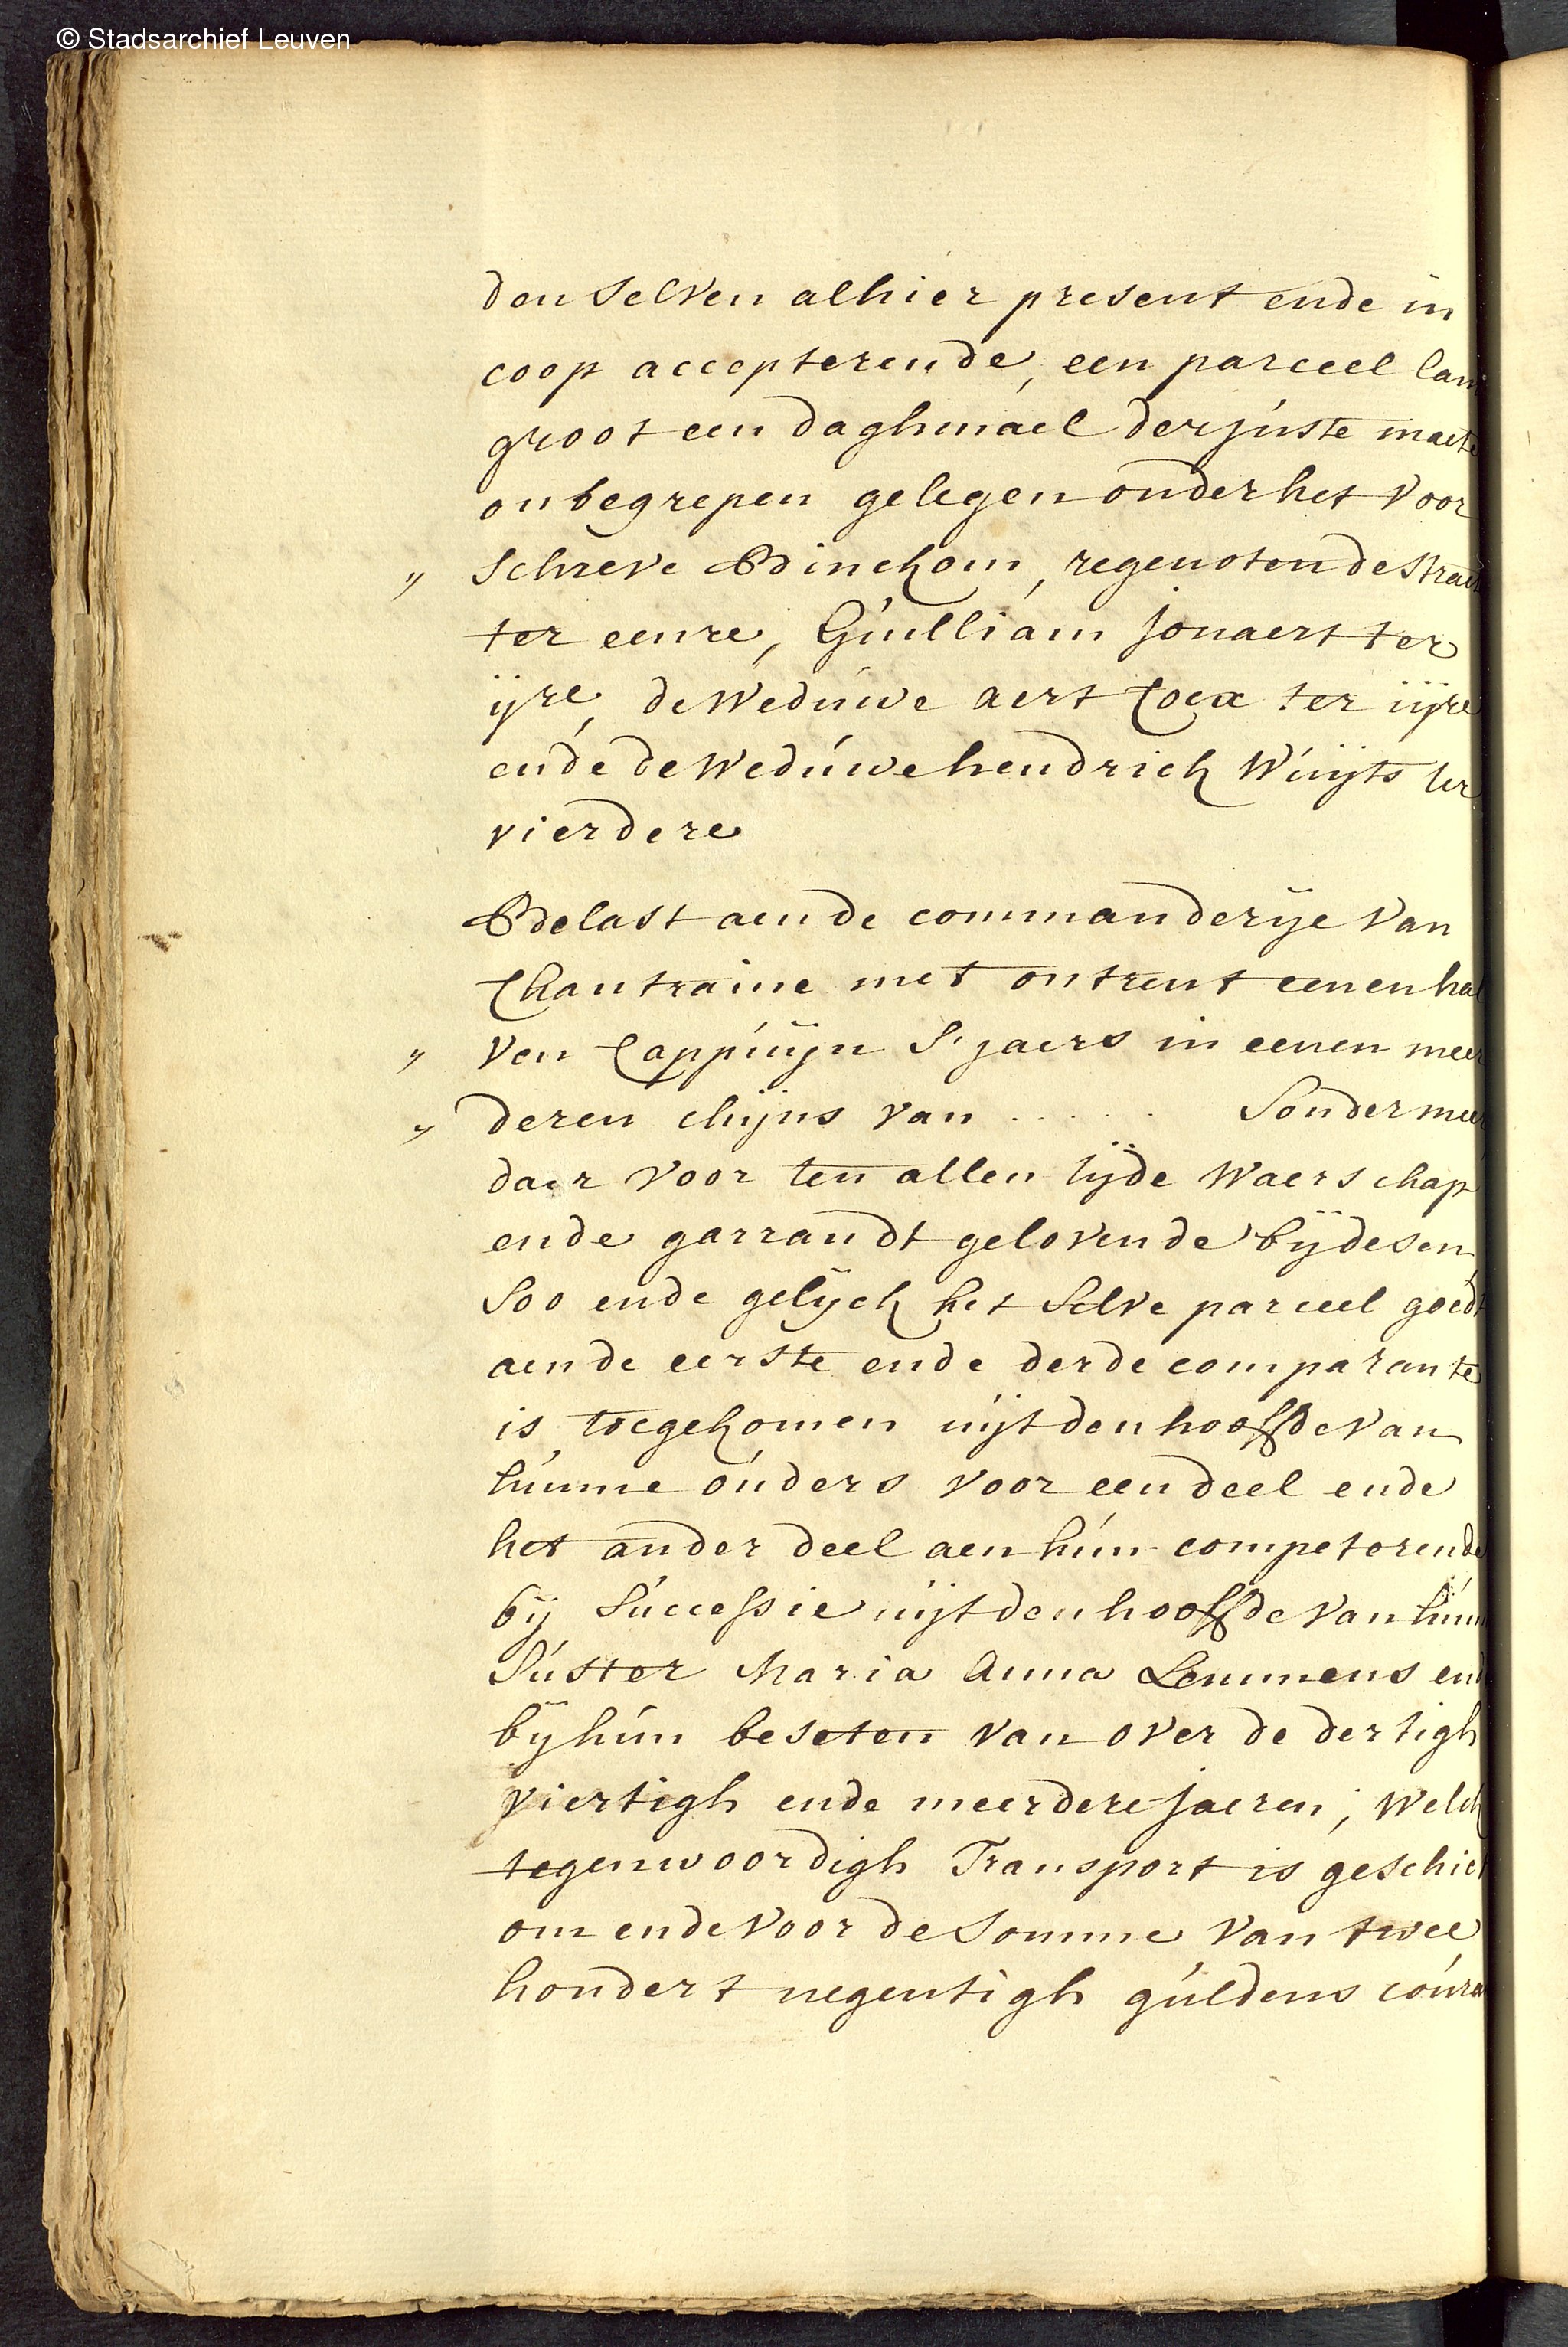 © Stadsarchief Leuven
den selven alhier present ende in
coop accepterende, een parceel lan
groot een daghmael der juste maete
onbegrepen gelegen onder het voor
" schreve Binckom, regenoten de strae
ter eenre, Guilliam Jonaert ter
ijre, de weduwe aert Cocx ter iijre
ende de weduwe hendrick Wuijts ter
vierdere
Belast aen de commanderije van
Chantraine met ontrent eenen hal
" ven Cappuijn s'jaers in eenen meer
" deren chijns van ..... sonder meer
daer voor ten allen tijde waerschap
ende garrandt gelovende bij desen,
soo ende gelijck het selve parceel goedt
aen de eerste ende derde comparante
is toegekomen uijt den hooffde van
hunne ouders voor een deel ende
het ander deel aen hun competerende
bij successie uijt den hooffde van hun
suster Maria Anna Lemmens en
bij hun beseten van over de dertigh
viertigh ende meerdere jaeren, welck
tegenwoordigh Transport is geschiet
om ende voor de somme van twee
hondert negentigh guldens coura